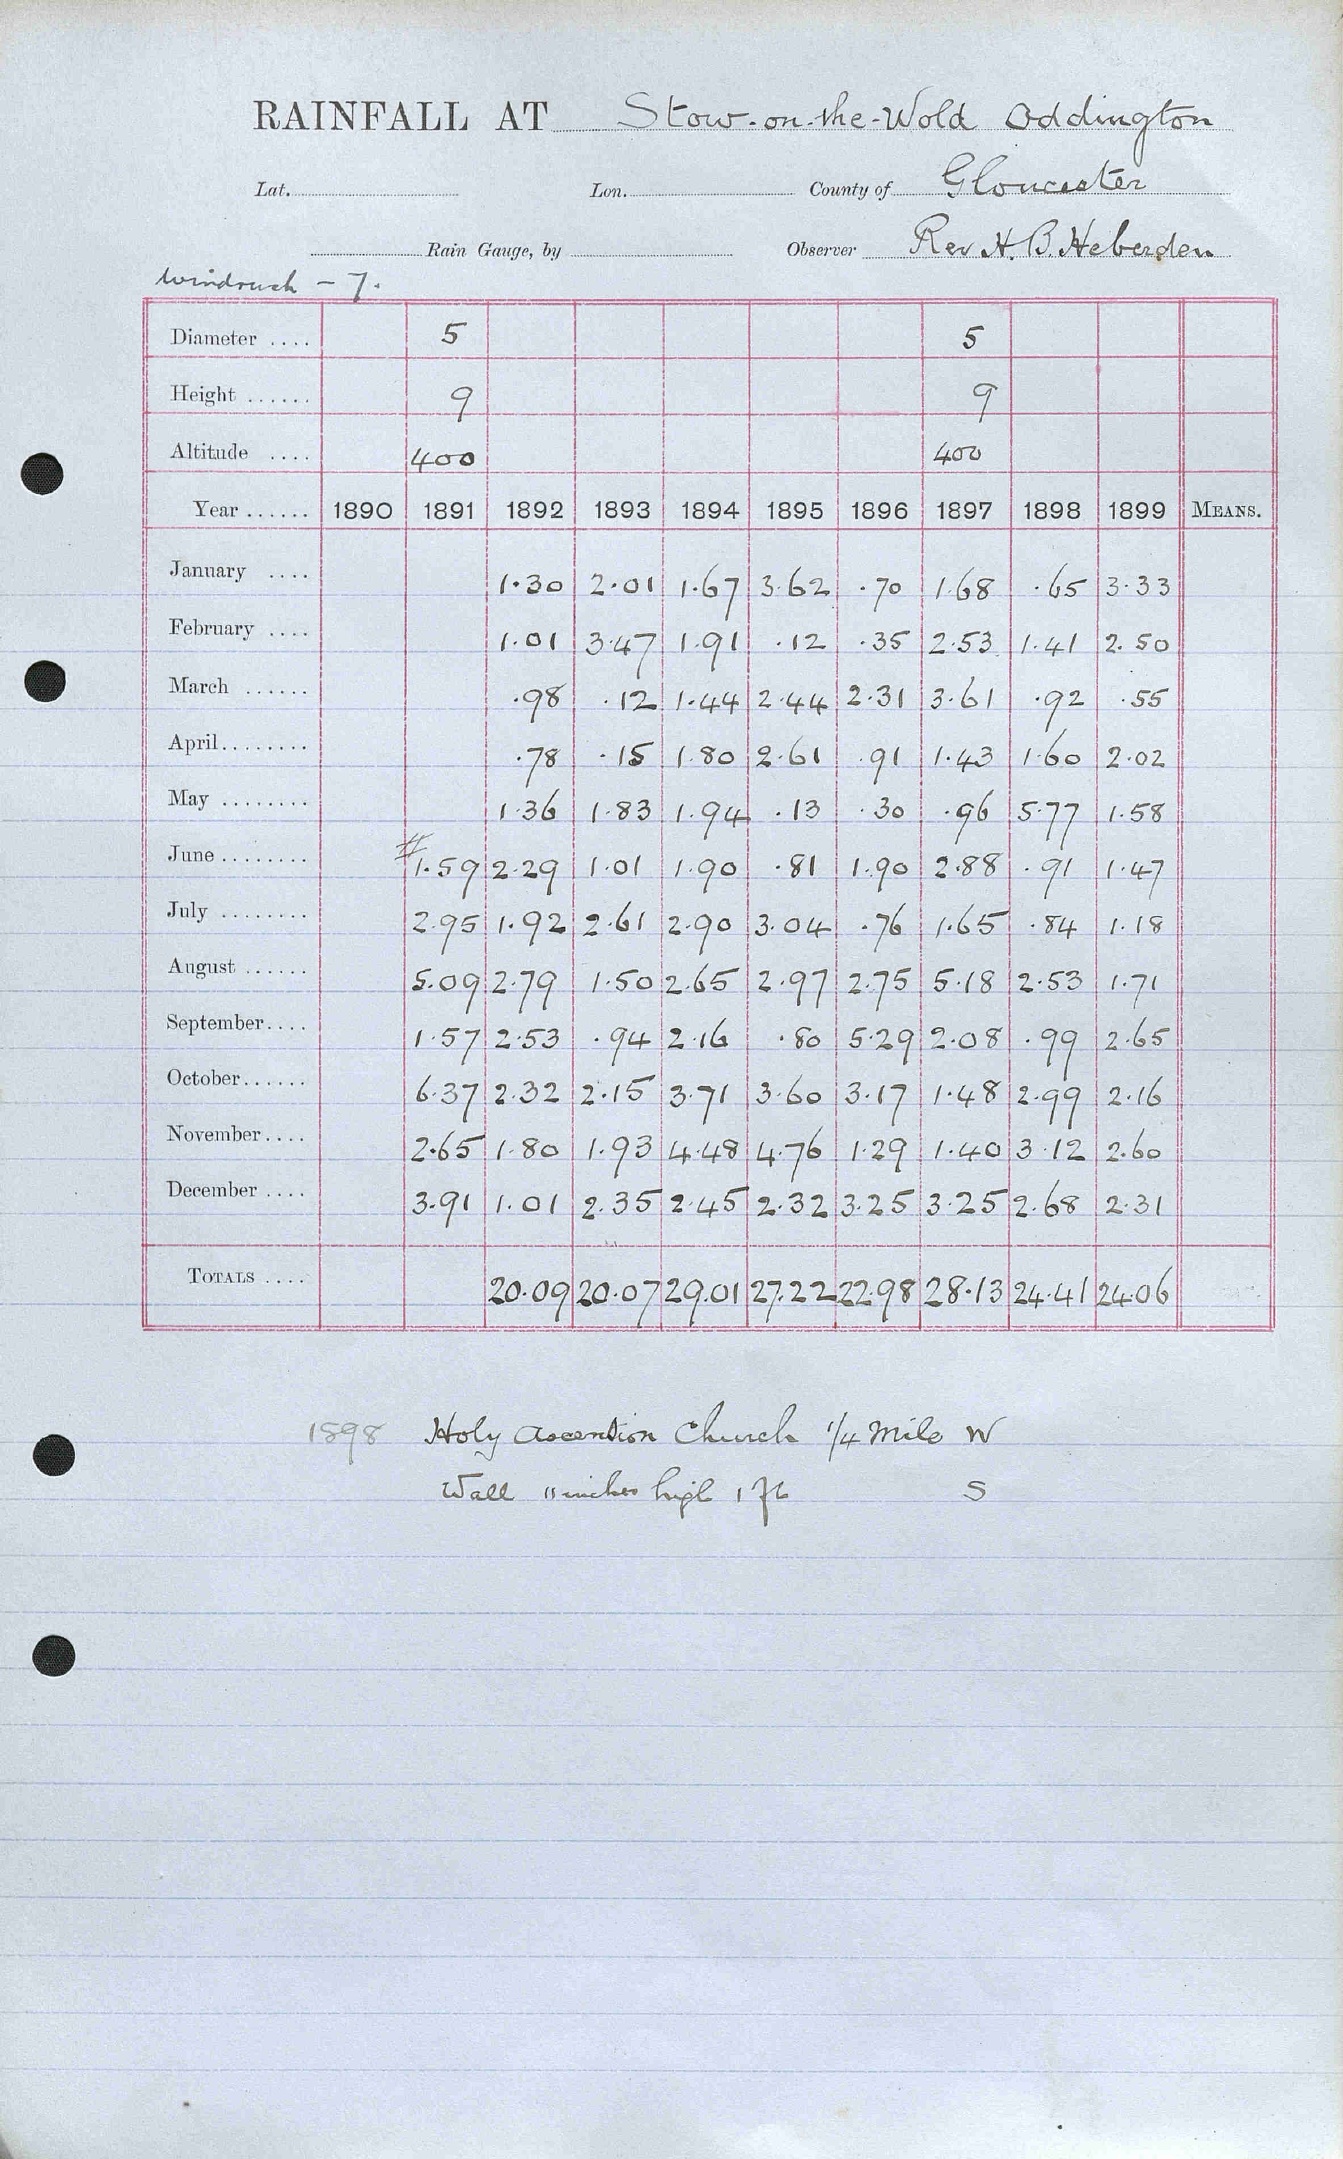 RAINFALL AT Stow-on-the-Wold Oddington
Lat. Lon. County of Gloucester
Rain Gauge, by Observer Rev H. B. Heberden
Windrush - 7.
Diameter .... 5 5
Height ...... 9 9
Altitude .... 400 400
Year ...... 1890 1891 1892 1893 1894 1895 1896 1897 1898 1899 MEANS.
January .... 1.30 2.01 1.67 3.62 .70 1.68 .65 3.33
February .... 1.01 3.47 1.91 .12 .35 2.53 1.41 2.50
March ...... .98 .12 1.44 2.44 2.31 3.61 .92 .55
April........ .78 .15 1.80 2.61 .91 1.43 1.60 2.02
May ........ 1.36 1.83 1.94 .13 .30 .96 5.77 1.58
June ........ # 1.59 2.29 1.01 1.90 .81 1.90 2.88 .91 1.47
July ........ 2.95 1.92 2.61 2.90 3.04 .76 1.65 .84 1.18
August ...... 5.09 2.79 1.50 2.65 2.97 2.75 5.18 2.53 1.71
September.... 1.57 2.53 .94 2.16 .80 5.29 2.08 .99 2.65
October...... 6.37 2.32 2.15 3.71 3.60 3.17 1.48 2.99 2.16
November.... 2.65 1.80 1.93 4.48 4.76 1.29 1.40 3.12 2.60
December .... 3.91 1.01 2.35 2.45 2.32 3.25 3.25 2.68 2.31
TOTALS .... 20.09 20.07 29.01 27.22 22.98 28.13 24.41 24.06
1898 Holy Ascention Church 1/4 Mile W
Wall 11 inches high 1 ft S